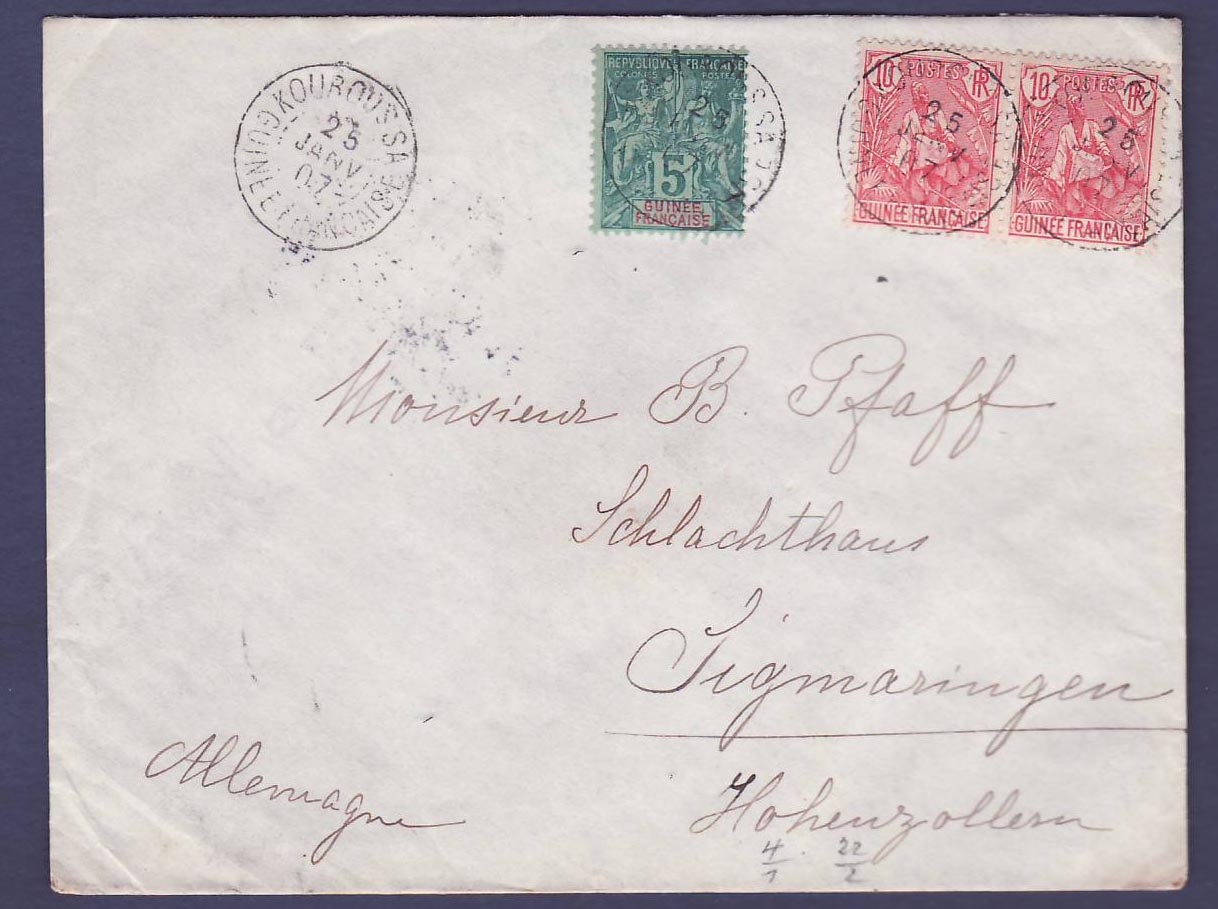 KOUROUSSA
25
JANV
07
GUINÉE FRANÇAISE
REPUBLIQUE FRANÇAISE
COLONIES POSTES
5
GUINÉE
FRANÇAISE
10 POSTES RF
GUINÉE FRANÇAISE
10 POSTES RF
GUINÉE FRANÇAISE
25
JANV
07
Monsieur B. Pfaff
Schlachthaus
Sigmaringen
Hohenzollern
Allemagne
4/1 . 22/2